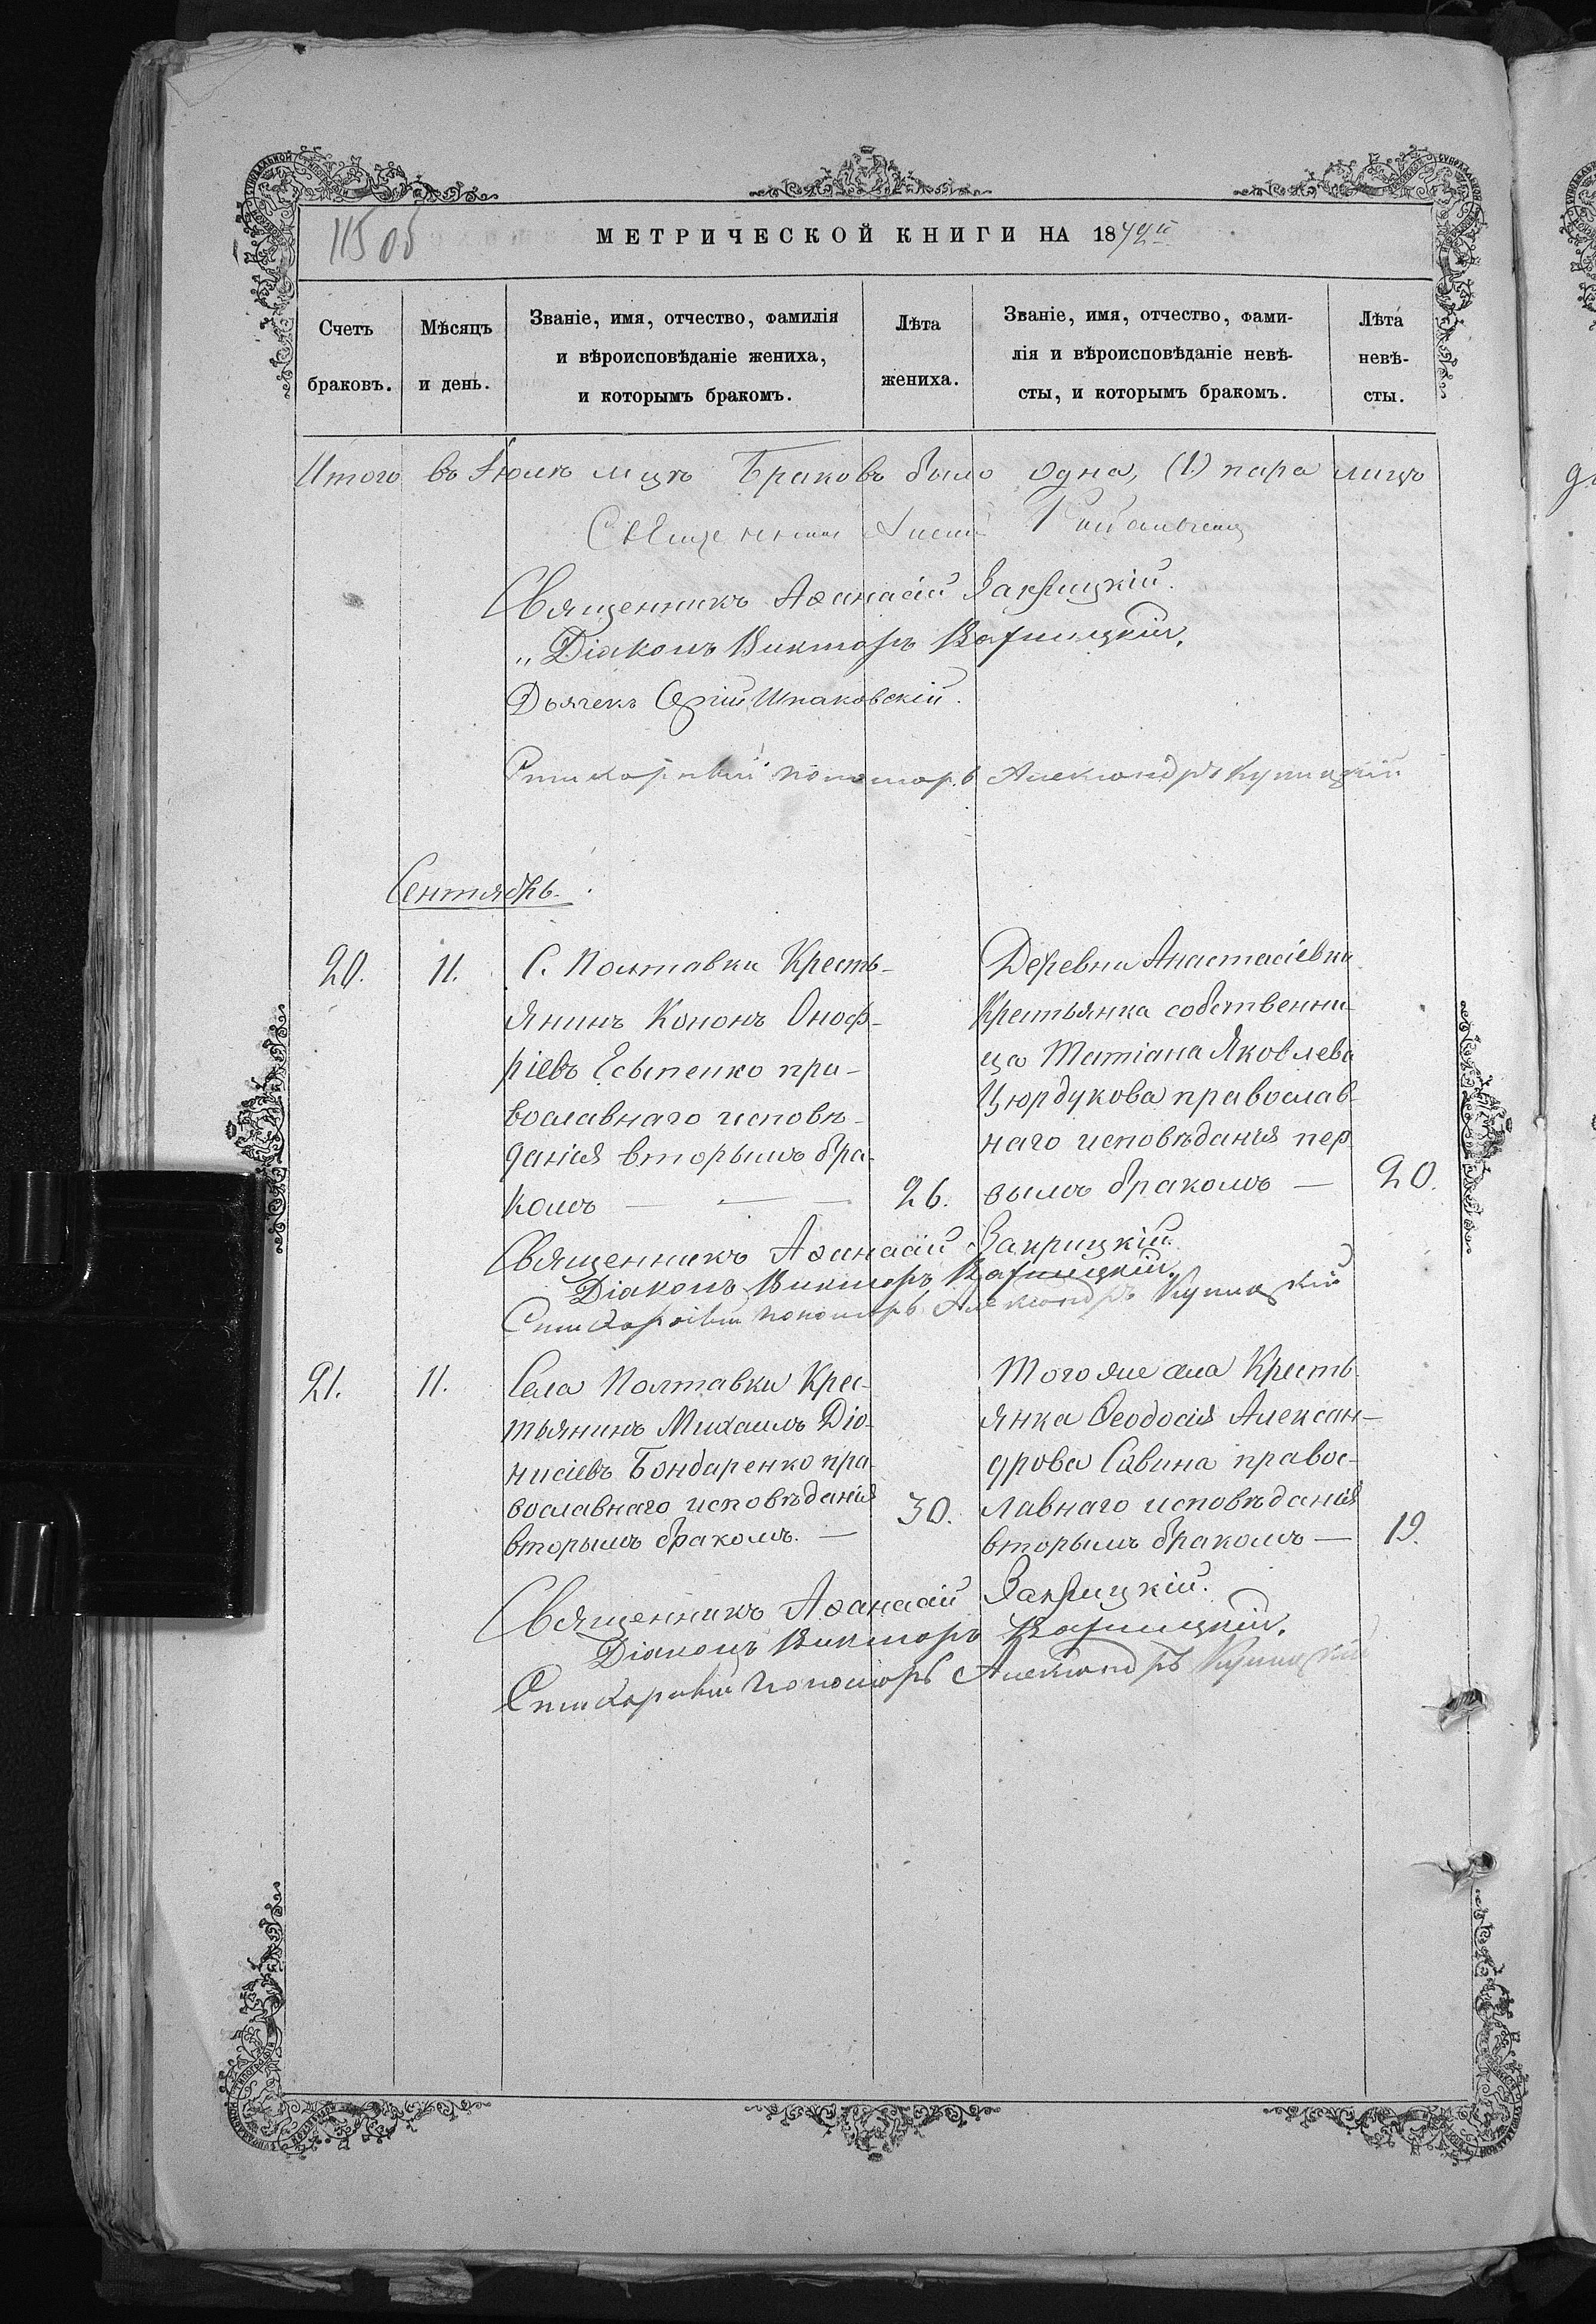 115 об
МЕТРИЧЕСКОЙ КНИГИ НА 18
Счетъ браковъ.
Мѣсяцъ и день.
Званіе, имя, отчество, фамилія
и вѣроисповѣданіе жениха,
и которымъ бракомъ.
Лѣта жениха.
Званіе, имя, отчество, фами-
лія и вѣроисповѣданіе невѣ-
сты, и которымъ бракомъ.
Лѣта невѣ-
сты.
Итого въ Іюлѣ мцѣ Браковъ было одна, (1.) пара лицъ
Священникъ
Священникъ Аѳанасій Закрицкій.
„Діаконъ Викторъ
Дьячекъ Сергій Шпаковскій.
Стихарный пономарь Александръ Купицкій
Сентябрь.
20.
11.
С. Полтавки Кресть-
янинъ Кононъ Оноф-
ріевъ Есыпенко пра-
вославнаго исповѣ-
данія вторымъ бра-
комъ —
26.
Деревни Анастасіевки
Крестьянка собственни-
ца Татіана Яковлева
Цюрдукова православ-
наго исповѣданія пер-
вымъ бракомъ —
20.
Священникъ Аѳанасій Закрицкій.
Діаконъ Викторъ
Стихарный пономарь Александръ Купицкій
21.
11.
Села Полтавки Крес-
тьянинъ Михаилъ Діо-
нисіевъ Бондаренко пра-
вославнаго исповѣданія
вторымъ бракомъ. —
30.
Того же села Кресть-
янка Ѳеодосія Алексан-
дрова Савина правос-
лавнаго исповѣданія
вторымъ бракомъ —
19.
Священникъ Аѳанасій Закрицкій.
Діаконъ Викторъ
Стихарный пономарь Александръ Купицкій